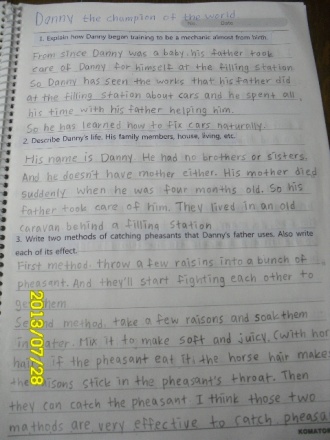 Danny the champion of the world
No. Date
1. Explain how Danny began training to be a mechanic almost from birth.
From since Danny was a baby. his father took
care of Danny for himself at the filling station
So Danny has seen the works that his father did
At the filling station about cars and he spent all
his time with his father helping him.
So he has learned how to fix cars naturally.
2. Describe Danny's life. His family members, house, living, etc.
His name is Danny He had no brothers or sisters.
And he doesn't have mother either. His mother died
suddenly when he was four months old. So his
father took care of him. They lived in an old
caravan behind a filling station
3. Write two methods of catching pheasants that Danny's father uses. Also write
each of its effect.
First method. throw a few raisins into a bunch of
pheasent. And they'll start fighting each other to
get them
Second method. take a few raisons and soak them
in water. Mix it to make soft and juicy. (with hor
hair if the pheasant eat it, the horse hair make
the raisons stick in the pheasant's throat. Then
they can catch the pheasant I think those two
mathods are very effective to catch pheasa
2013/07/28